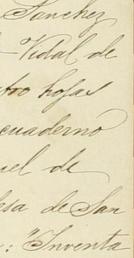 Sanchez
Vidal de
hojas
cuaderno
de
de San
: "Inventa